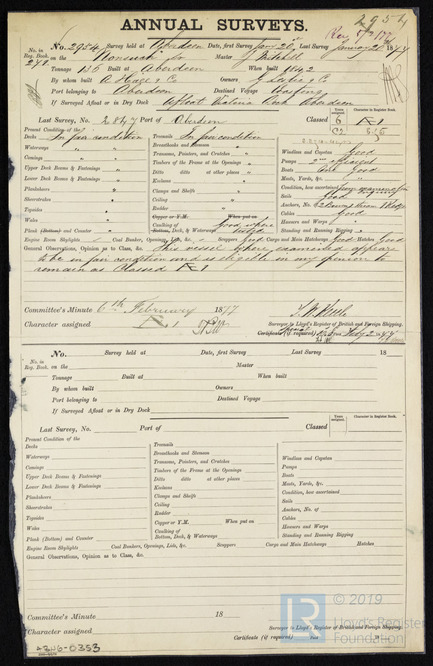 2954
ANNUAL SURVEYS.
No. 2954 Survey held at Aberdeen Date, first Survey Jany 20 Last Survey January 20 1877
No. in Reg. Book. 249 Master J. Mitchell
Tonnage 136 Built at Aberdeen When built 1842
By whom built A. Hall & Co Owners
Port belonging to Aberdeen Destined Voyage Coasting
If Surveyed Afloat or in Dry Dock Afloat Victoria Dock Aberdeen
Last Survey, No. 2847 Port of Aberdeen Classed
Years assigned. Character in Register Book.
Present Condition of the
Decks In fair condition
Waterways "
Comings "
Upper Deck Beams & Fastenings "
Lower Deck Beams & Fastenings "
Plankshears "
Sheerstrakes "
Topsides "
Wales "
Plank (Bottom) and Counter
Treenails In fair condition
Breasthooks and Stemson "
Transoms, Pointers, and Crutches
Timbers of the Frame at the Openings
Ditto ditto at other places
Keelsons
Clamps and Shelfs
Ceiling
Rudder
Copper or Y.M. When put on
Caulking of Bottom, Deck, & Waterways Good where tested
Windlass and Capstan Good
Pumps
Boats Good
Masts, Yards, &c.
Condition, how ascertained
Sails Good
Anchors, No.
Cables Good
Hawsers and Warps
Standing and Running Rigging
Engine Room Skylights Coal Bunkers, Openings, Lids, &c. Scuppers Good Cargo and Main Hatchways Good Hatches Good
General Observations, Opinion as to Class, &c. This vessel where examined appears
to be in fair condition and is eligible in my opinion to
remain as Classed
Committee's Minute 6th February 1877
Character assigned
Surveyor to Lloyd's Register of British and Foreign Shipping.
Certificate (if required)
No. Survey held at Date, first Survey Last Survey 18
No. in Reg. Book. Master
Tonnage Built at When built
By whom built Owners
Port belonging to Destined Voyage
If Surveyed Afloat or in Dry Dock
Last Survey, No. Port of Classed
Years assigned. Character in Register Book.
Present Condition of the
Decks
Waterways
Comings
Upper Deck Beams & Fastenings
Lower Deck Beams & Fastenings
Plankshears
Sheerstrakes
Topsides
Wales
Plank (Bottom) and Counter
Treenails
Breasthooks and Stemson
Transoms, Pointers, and Crutches
Timbers of the Frame at the Openings
Ditto ditto at other places
Keelsons
Clamps and Shelfs
Ceiling
Rudder
Copper or Y.M. When put on
Caulking of Bottom, Deck, & Waterways
Windlass and Capstan
Pumps
Boats
Masts, Yards, &c.
Condition, how ascertained
Sails
Anchors, No. of
Cables
Hawsers and Warps
Standing and Running Rigging
Engine Room Skylights Coal Bunkers, Openings, Lids, &c. Scuppers Cargo and Main Hatchways Hatches
General Observations, Opinion as to Class, &c.
Committee's Minute 18
Character assigned
Surveyor to Lloyd's Register of British and Foreign Shipping.
Certificate (if required)
© 2019
LR
Lloyd's Register
Foundation
4346-0353